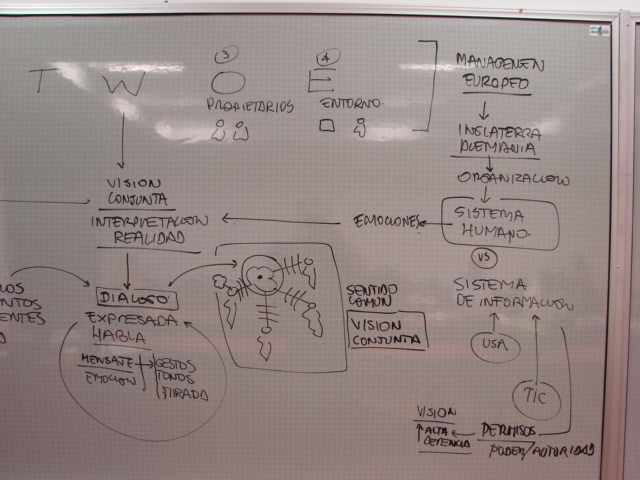 T W O E
3
4
PROPIETARIOS
ENTORNO
MANAGEMEN
EUROPEO
INGLATERRA
ALEMANIA
ORGANIZACION
SISTEMA
HUMANO
VS
SISTEMA
DE INFORMACION
USA
TIC
PERMISOS
PODER/AUTORIDAD
VISION
ALTA
GERENCIA
EMOCIONES
VISION
CONJUNTA
INTERPRETACION
REALIDAD
DIALOGO
EXPRESADA
HABLA
MENSAJE
EMOCION
GESTOS
TONOS
MIRADA
SENTIDO
COMUN
VISION
CONJUNTA
LOS
NTOS
ENTES